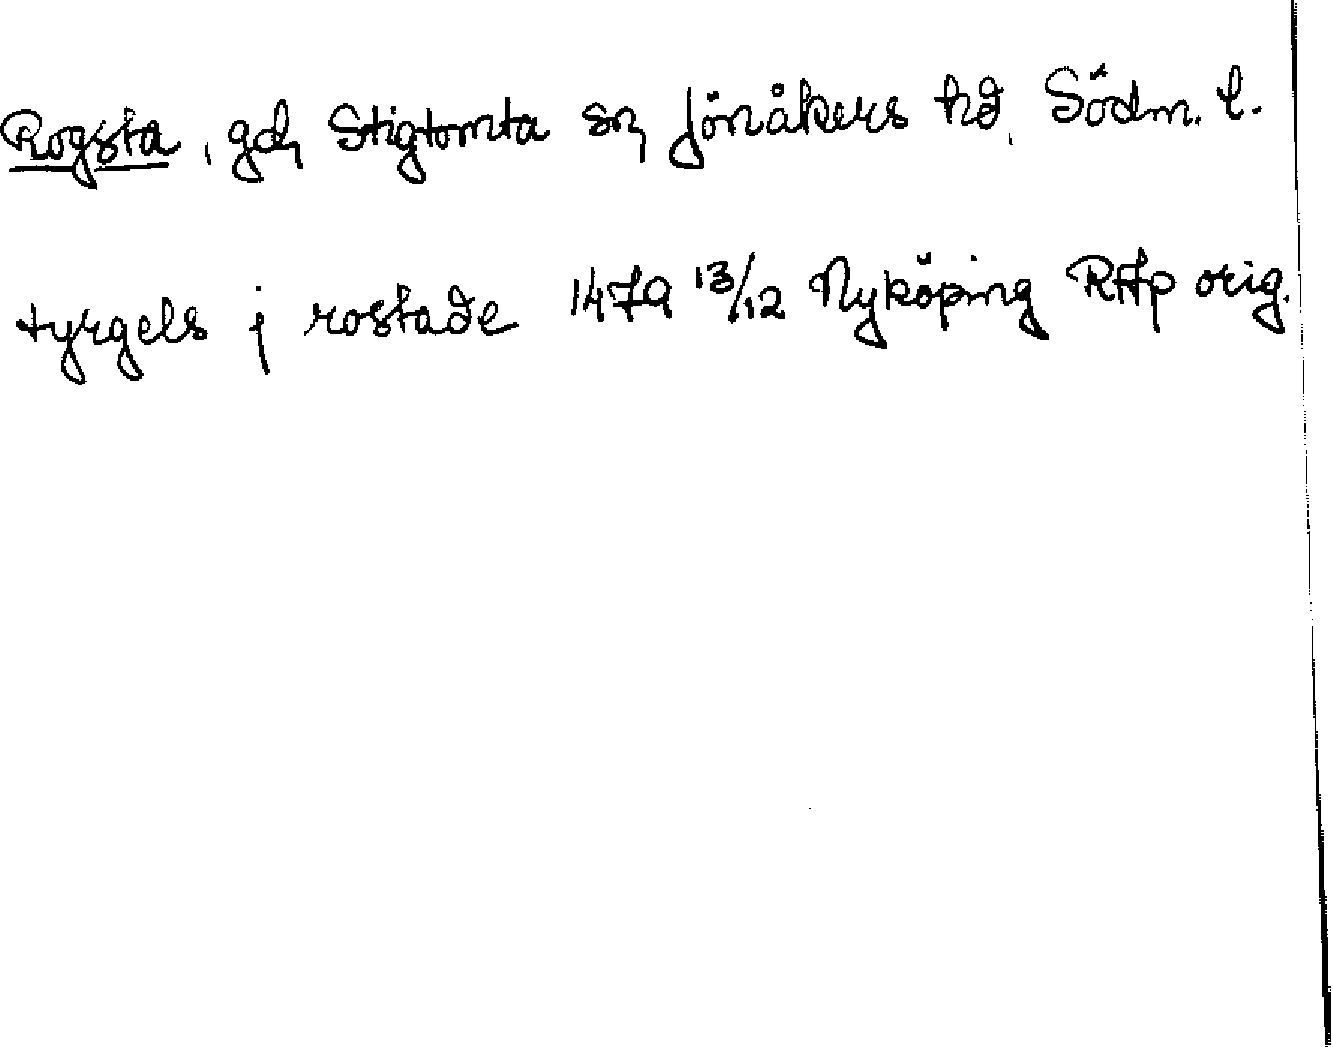 Rogsta, gd, Stigtomta sn, Jönåkers hd, Södm. l.
tyrgels j rostade 1479 13/12 Nyköping RAp orig.